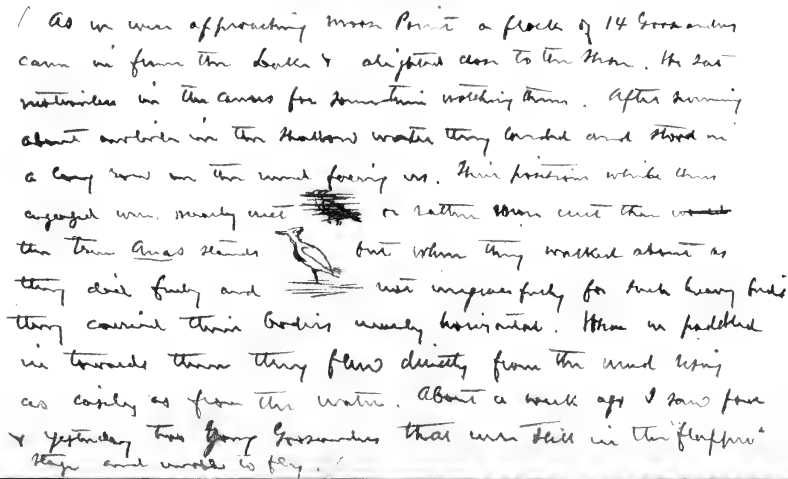 / As we were approaching Moose Point a flock of 14 Goosanders
came in from the Lake & alighted close to the shore. We sat
motionless in the canoes for some time watching them. After swimming
about awhile in the shallow water they landed and stood in
a long row on the mud facing us. Their positions while thus
engaged were nearly erect or rather more erect than would
the true Anas stands but when they walked about as
they did freely and not ungracefully for such heavy birds
they carried their bodies nearly horizontal. When we paddled
in towards them they flew directly from the mud rising
as easily as from the water. About a week ago I saw four
& yesterday two young Goosanders that were still in the "flapper"
stage and unable to fly. /